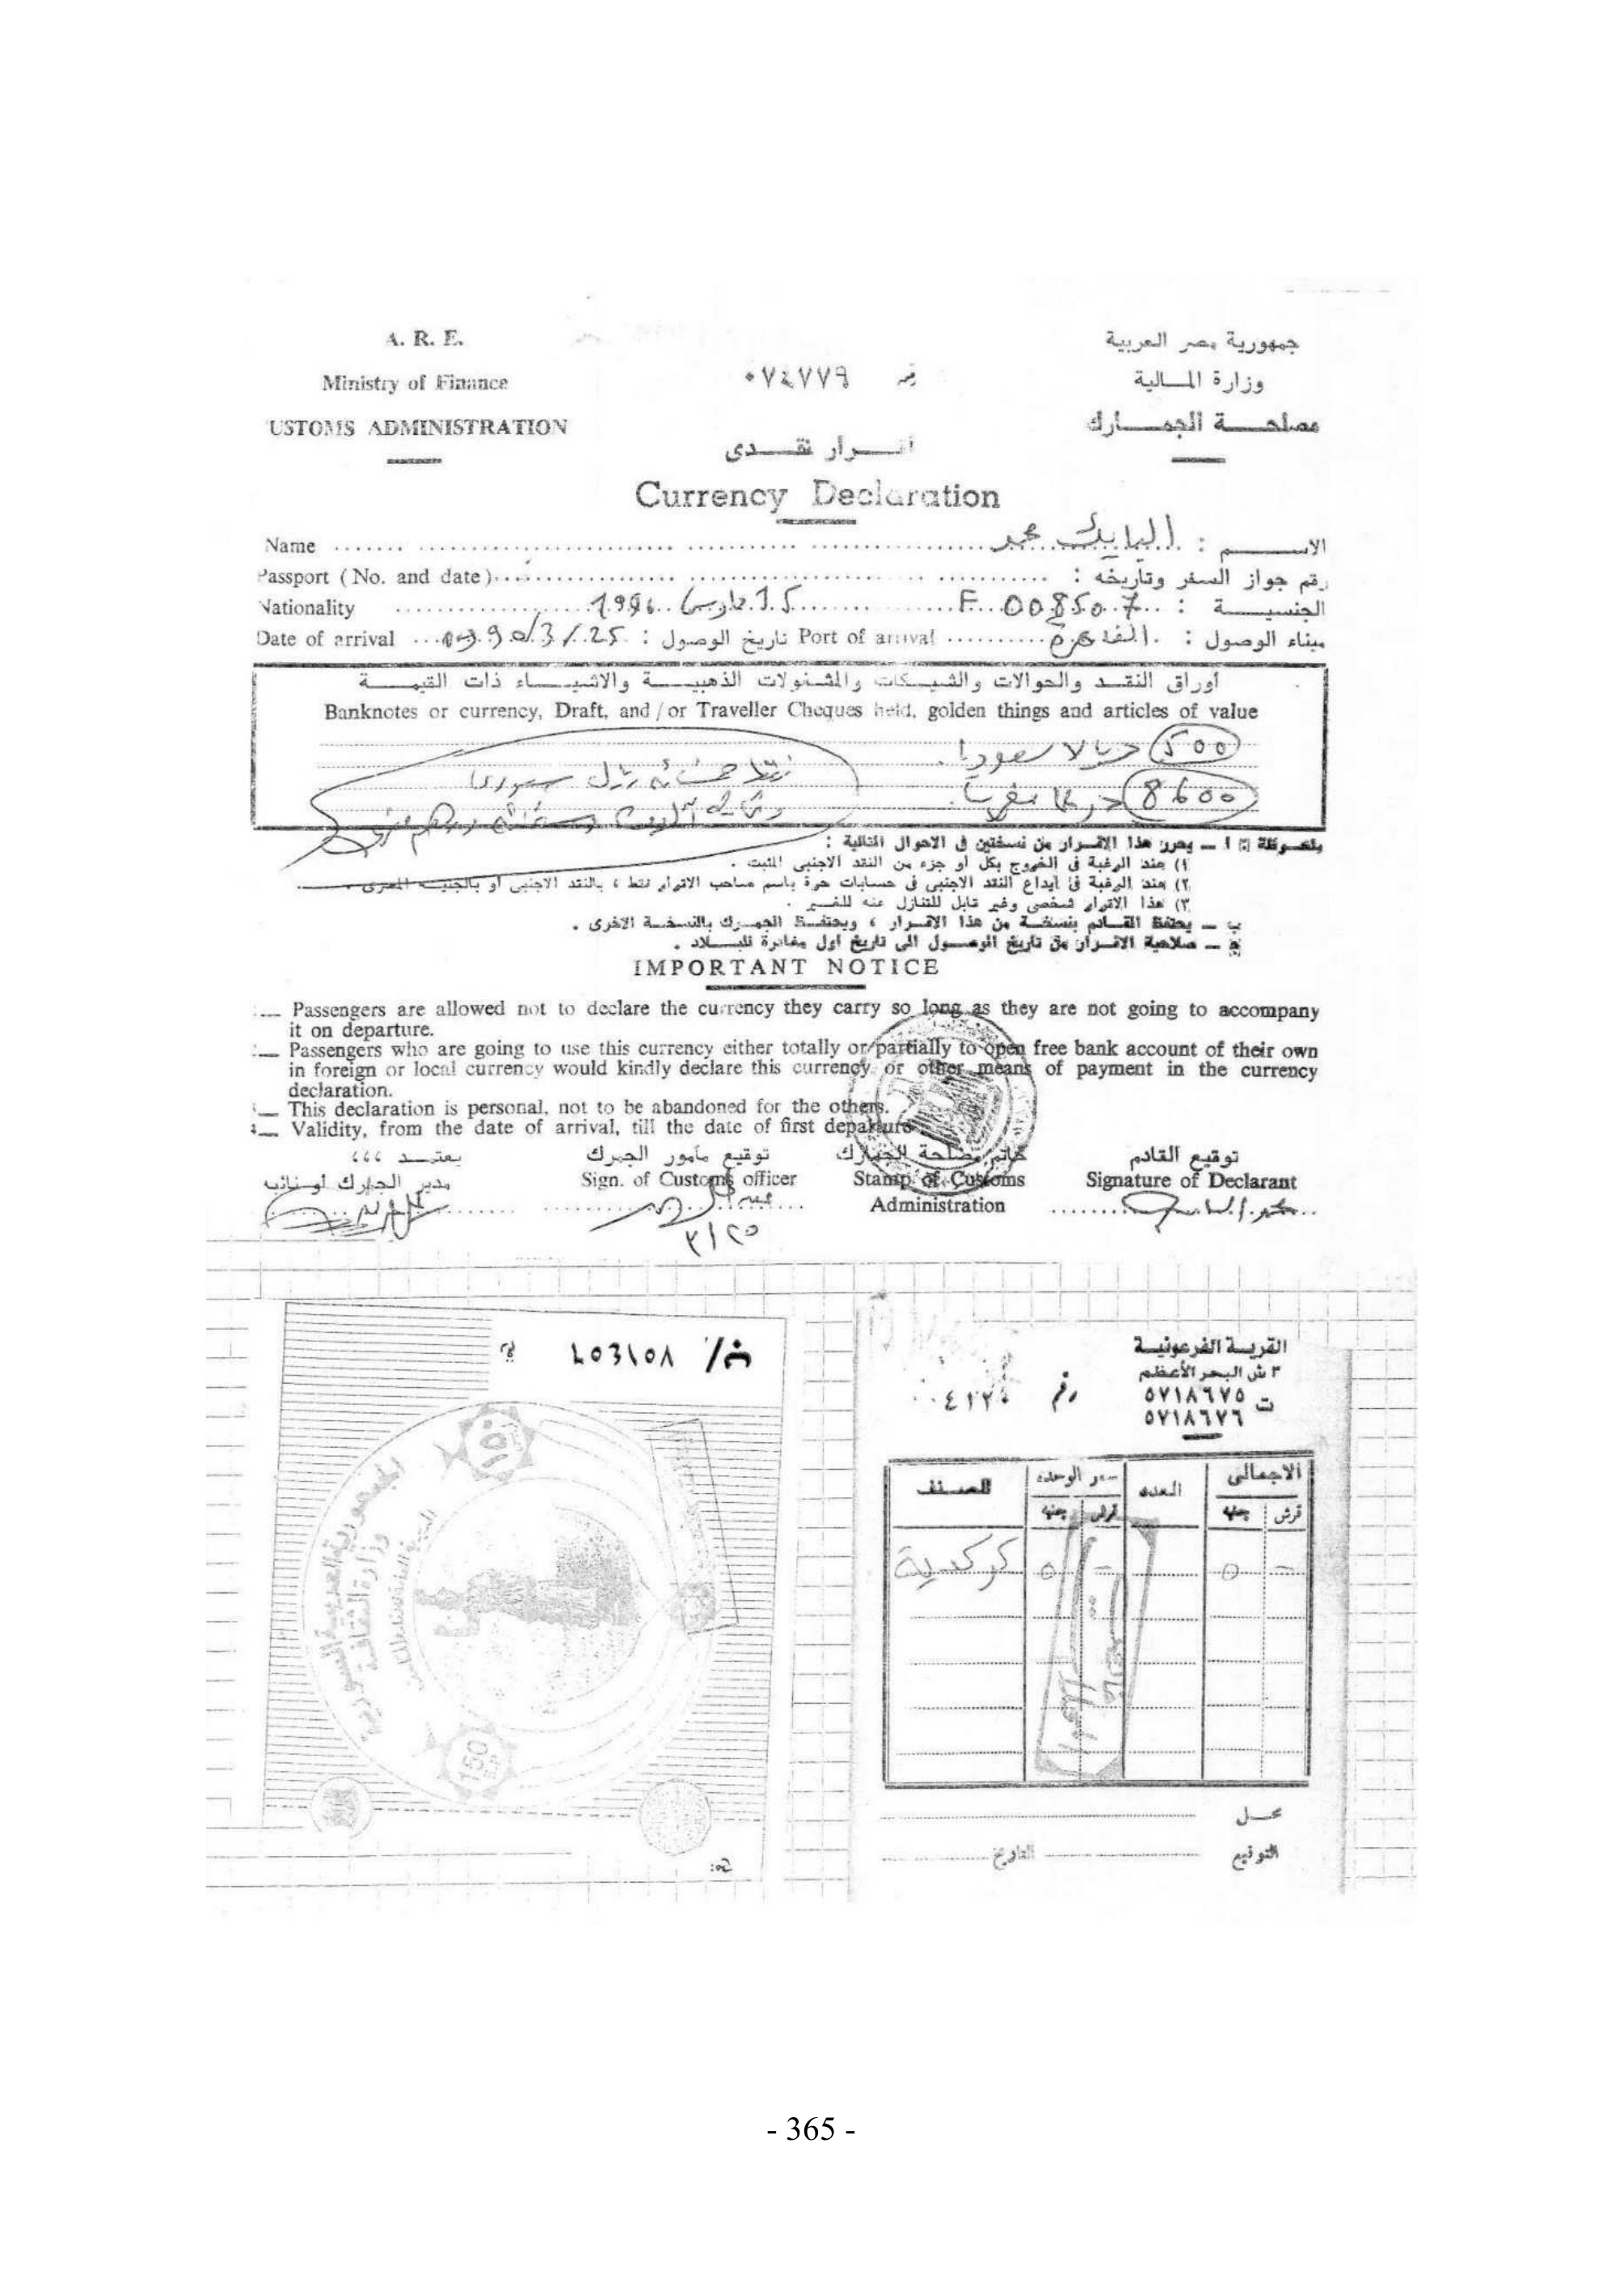 A. R. E.
جمهورية مصر العربية
Ministry of Finance
٠٧٤٧٧٩
وزارة المــالية
USTOMS ADMINISTRATION
مصلحــة الجمــارك
اقــرار نقــدى
Currency Declaration
Name
الاســـم :
البايك محمد
Passport (No. and date)
رقم جواز السفر وتاريخه :
Nationality
الجنسيـــة :
F 008507
15 مارس 1996
Date of arrival
25/3/
تاريخ الوصول :
Port of arrival
القاهرة
ميناء الوصول :
أوراق النقــد والحوالات والشيــكات والمشغولات الذهبيــة والاشيــاء ذات القيمــة
Banknotes or currency, Draft, and/or Traveller Cheques held, golden things and articles of value
500 ريالا سعوديا.
8600 درهما مغربيا.
ملحــوظة : ا ــ يحرر هذا الاقــرار من نسختين فى الاحوال التالية :
١) عند الرغبة فى الخروج بكل أو جزء من النقد الاجنبى المثبت .
٢) عند الرغبة فى ايداع النقد الاجنبى فى حسابات حرة باسم صاحب الاقرار فقط ، بالنقد الاجنبى أو بالجنيــه المصرى .
٣) هذا الاقرار شخصى وغير قابل للتنازل عنه للغــير .
ب ــ يحتفظ القــادم بنسخــة من هذا الاقــرار ، ويحتفــظ الجمــرك بالنسخــة الاخرى .
ج ــ صلاحية الاقــرار من تاريخ الوصــول الى تاريخ اول مغادرة للبــلاد .
IMPORTANT NOTICE
— Passengers are allowed not to declare the currency they carry so long as they are not going to accompany
it on departure.
— Passengers who are going to use this currency either totally or/partially to open free bank account of their own
in foreign or local currency would kindly declare this currency or other means of payment in the currency
declaration.
— This declaration is personal, not to be abandoned for the others.
— Validity, from the date of arrival, till the date of first departure
يعتمــد ،،،
توقيع مأمور الجمرك
خاتم مصلحة الجمارك
توقيع القادم
مدير الجمارك او نائبه
Sign. of Customs officer
Stamp of Customs
Signature of Declarant
Administration
٣/٢٥
القريــة الفرعونيــة
٣ ش البحر الأعظم
ت ٥٧١٨٦٧٥
٥٧١٨٦٧٦
رقم
الجمهورية العربية السورية
وزارة الثقافة
150
الصنف
سعر الوحده
العدد
الاجمالى
جنيه
قرش
جنيه
قرش
كركدية
٥
-
٥
-
محــل
التوقيع
التاريخ
- 365 -